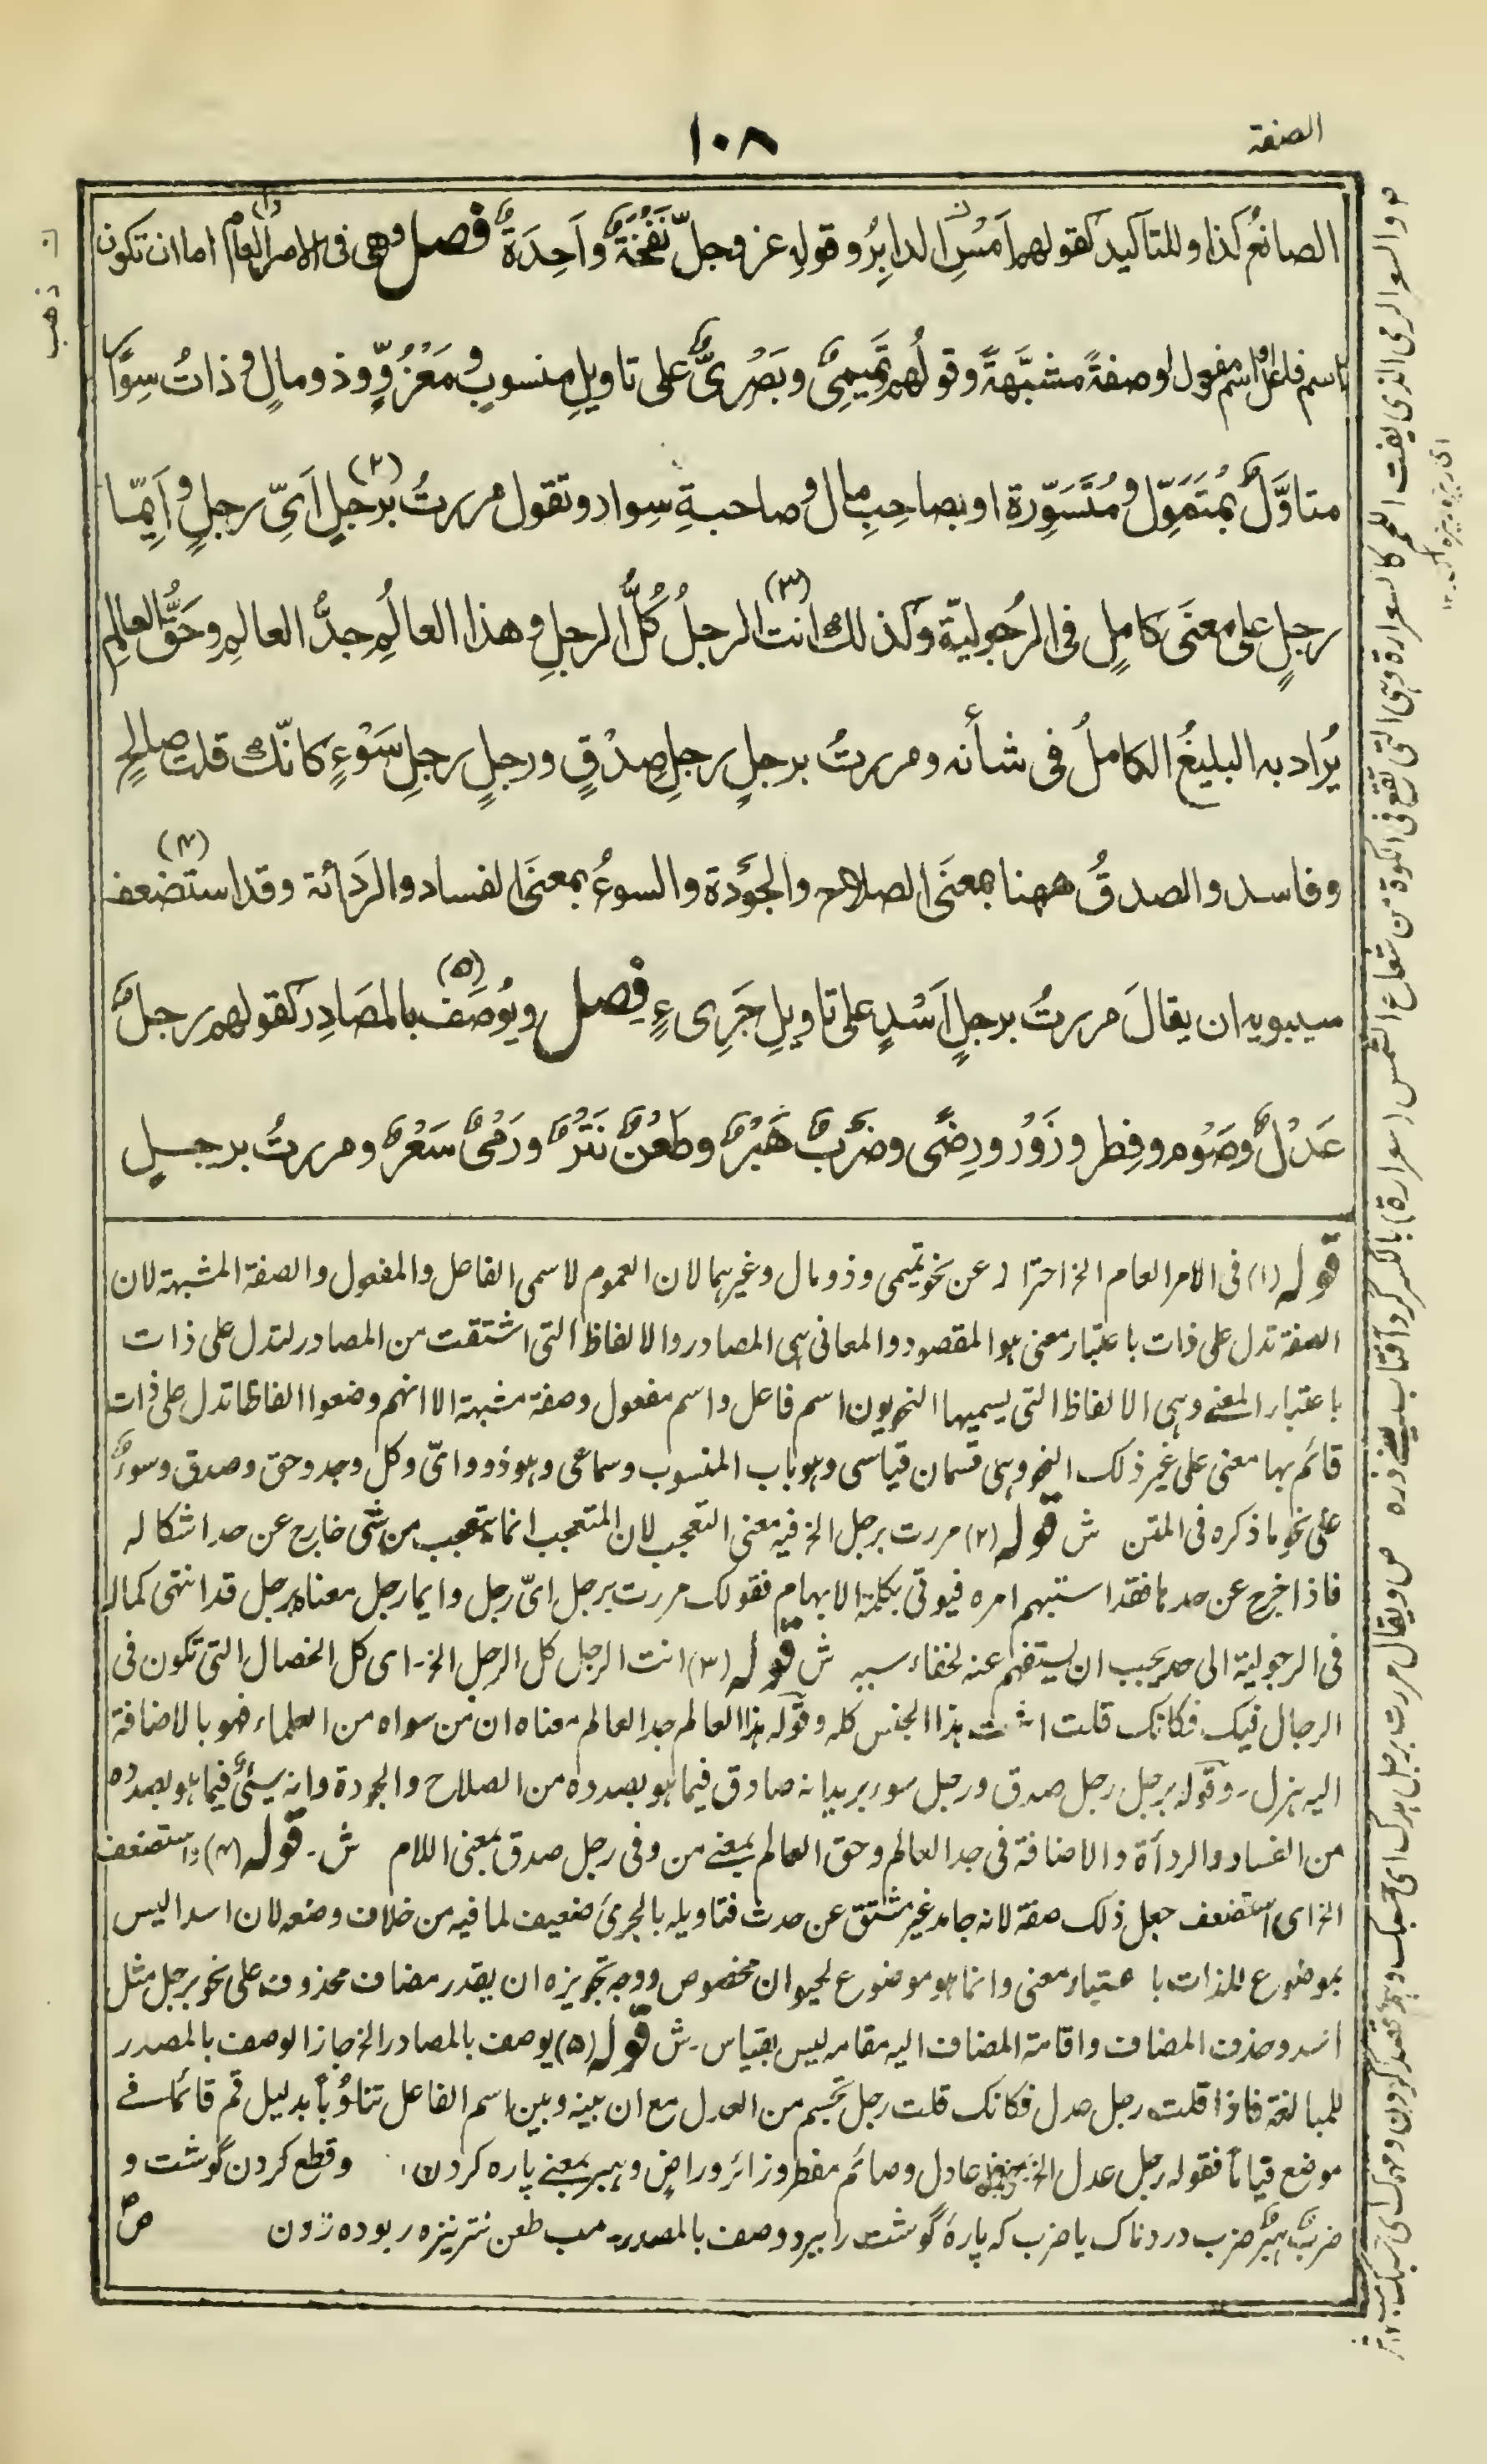 الصفة
١٠٨
الصانعُ كذا وللتاكيد كقولهم اَمْسِ الدابِرُ وقولِهِ عز وجلّ نَفْخَةٌ وَّاحِدَةٌ فصل وهى فى الامر العامّ (١) اما ان تكون
اسم فاعل او اسم مفعول او صفةً مشبَّهةً وقولُهم تَمِيمِىٌّ وبَصْرِىٌّ على تاويلِ منسوبٍ ومَعْزُوٍّ وذو مالٍ وذاتُ سِوَارٍ
متاوَّلٌ بمُتَمَوِّل ومُتَسَوِّرة او بصاحِبِ مال وصاحبةِ سِوار وتقول مررتُ برجلٍ (٢) اَىِّ رجلٍ واَيِّما
رجلٍ على معنَى كاملٍ فى الرُجوليّة وكذلك انت (٣) الرجلُ كُلُّ الرجلِ وهذا العالِمُ جدُّ العالِمِ وحَقُّ العالِمِ
يُراد به البليغُ الكاملُ فى شأنه ومررتُ برجلٍ رجلِ صِدْقٍ ورجلٍ رجلِ سَوْءٍ كانّك قلت صالحٍ
وفاسد والصدقُ ههنا بمعنَى الصلاح والجَوْدة والسوءُ بمعنَى الفساد والرَدَائة وقد استضعف (٤)
سيبويه ان يقالَ مررتُ برجلٍ اَسَدٍ على تاويلِ جَرِىءٍ فصل ويُوصَف (٥) بالمصَادِر كقولهم رجلٌ
عَدْلٌ وصَوْم وفِطر وزَوْر ورِضًى وضَرْبٌ هَبْرٌ وطَعْنٌ نَتْرٌ ورَمْىٌ سَعْرٌ ومررتُ برجلٍ
قوله (١) فى الامر العام الخ احتراز عن نحو تميمى وذو مال وغيرهما لان العموم لاسمى الفاعل والمفعول والصفة المشبهة لان
الصفة تدل على ذات باعتبار معنى هو المقصود والمعانى هى المصادر والالفاظ التى اشتقت من المصادر لتدل على ذات
باعتبار المعنے وهى الالفاظ التى يسميها النحويون اسم فاعل واسم مفعول وصفة مشبهة الا انهم وضعوا الفاظا تدل على ذات
قائم بها معنى على غير ذلك النحو وهى قسمان قياسى وهو باب المنسوب وسماعى وهو ذو واىّ وكل وجد وحق وصدق وسوءٌ
على نحو ما ذكره فى المتن ش قوله (٢) مررت برجل الخ فيه معنى التعجب لان المتعجب انما يتعجب من شئ خارج عن حد اشكاله
فاذا خرج عن حدها فقد استبهم امره فيوتى بكلمة الابهام فقولك مررت برجل اىّ رجل وايما رجل معناه برجل قد انتهى كماله
فى الرجولية الى حد يجب ان يستفهم عنه لخفاء سببه ش قوله (٣) انت الرجل كل الرجل الخ۔ اى كل الخصال التى تكون فى
الرجال فيك فكانك قلت انت هذا الجنس كله وقوله هذا العالم جد العالم معناه ان من سواه من العلماء فهو بالاضافة
اليه هزل۔ وقوله برجل رجل صدق ورجل سوء يريد انه صادق فيما هو بصدده من الصلاح والجودة وانه سيئٌ فيما هو بصدده
من الفساد والردأة والاضافة فى جد العالم وحق العالم بمعنے من وفى رجل صدق بمعنى اللام ش۔ قوله (٤) استضعف
الخ اى استضعف جعل ذلك صفة لانه جامد غير مشتق عن حدث فتاويله بالجرئ ضعيف لما فيه من خلاف وضعه لان اسدا ليس
بموضوع للذات باعتبار معنى وانما هو موضوع لحيوان مخصوص ووجه تجويزه ان يقدر مضاف محذوف على نحو برجل مثل
اسد وحذف المضاف واقامة المضاف اليه مقامه ليس بقياس۔ ش قوله (٥) يوصف بالمصادر الخ جاز الوصف بالمصدر
للمبالغة فاذا قلت رجل عدل فكانك قلت رجل تجسم من العدل مع ان بينه وبين اسم الفاعل تناوُباً بدليل قم قائما فے
موضع قياماً فقوله رجل عدل الخ عادل وصائم مفطر وزائر وراضٍ وهبر بمعنے پاره كردن وقطع كردن گوشت و
ضربٌ هبرٌ ضرب دردناك يا ضرب كه پارۀ گوشت را ببرد وصف بالمصدر طعن نتر نيزه ربوده زدن ص
والسوالرمى الذى يفت اللحم كالسعرارة وهى التى تقع فى الكوة من شعاع الشمس (سعرارة) بالكسر گرد آفتاب يعنے ذره ص ويقال مررت برجل هدك اى حسبك